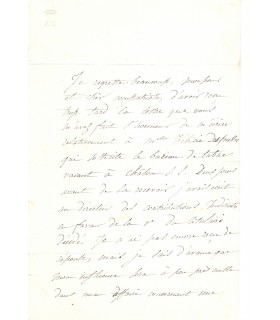 Je regrette beaucoup, monsieur
et cher compatriote, d'avoir reçu
trop tard la lettre que vous
m'avez fait l'honneur de m'écrire
relativement à
qui sollicite le bureau de tabac
vacant à Châlons s/S. Deux jours
avant de la recevoir j'avais écrit
au directeur des contributions indirectes
en faveur de la
décédé. Je n'ai pas encore reçu de
réponse, mais je dois d'avance que
mon influence sera à peu près nulle
dans une affaire concernant une